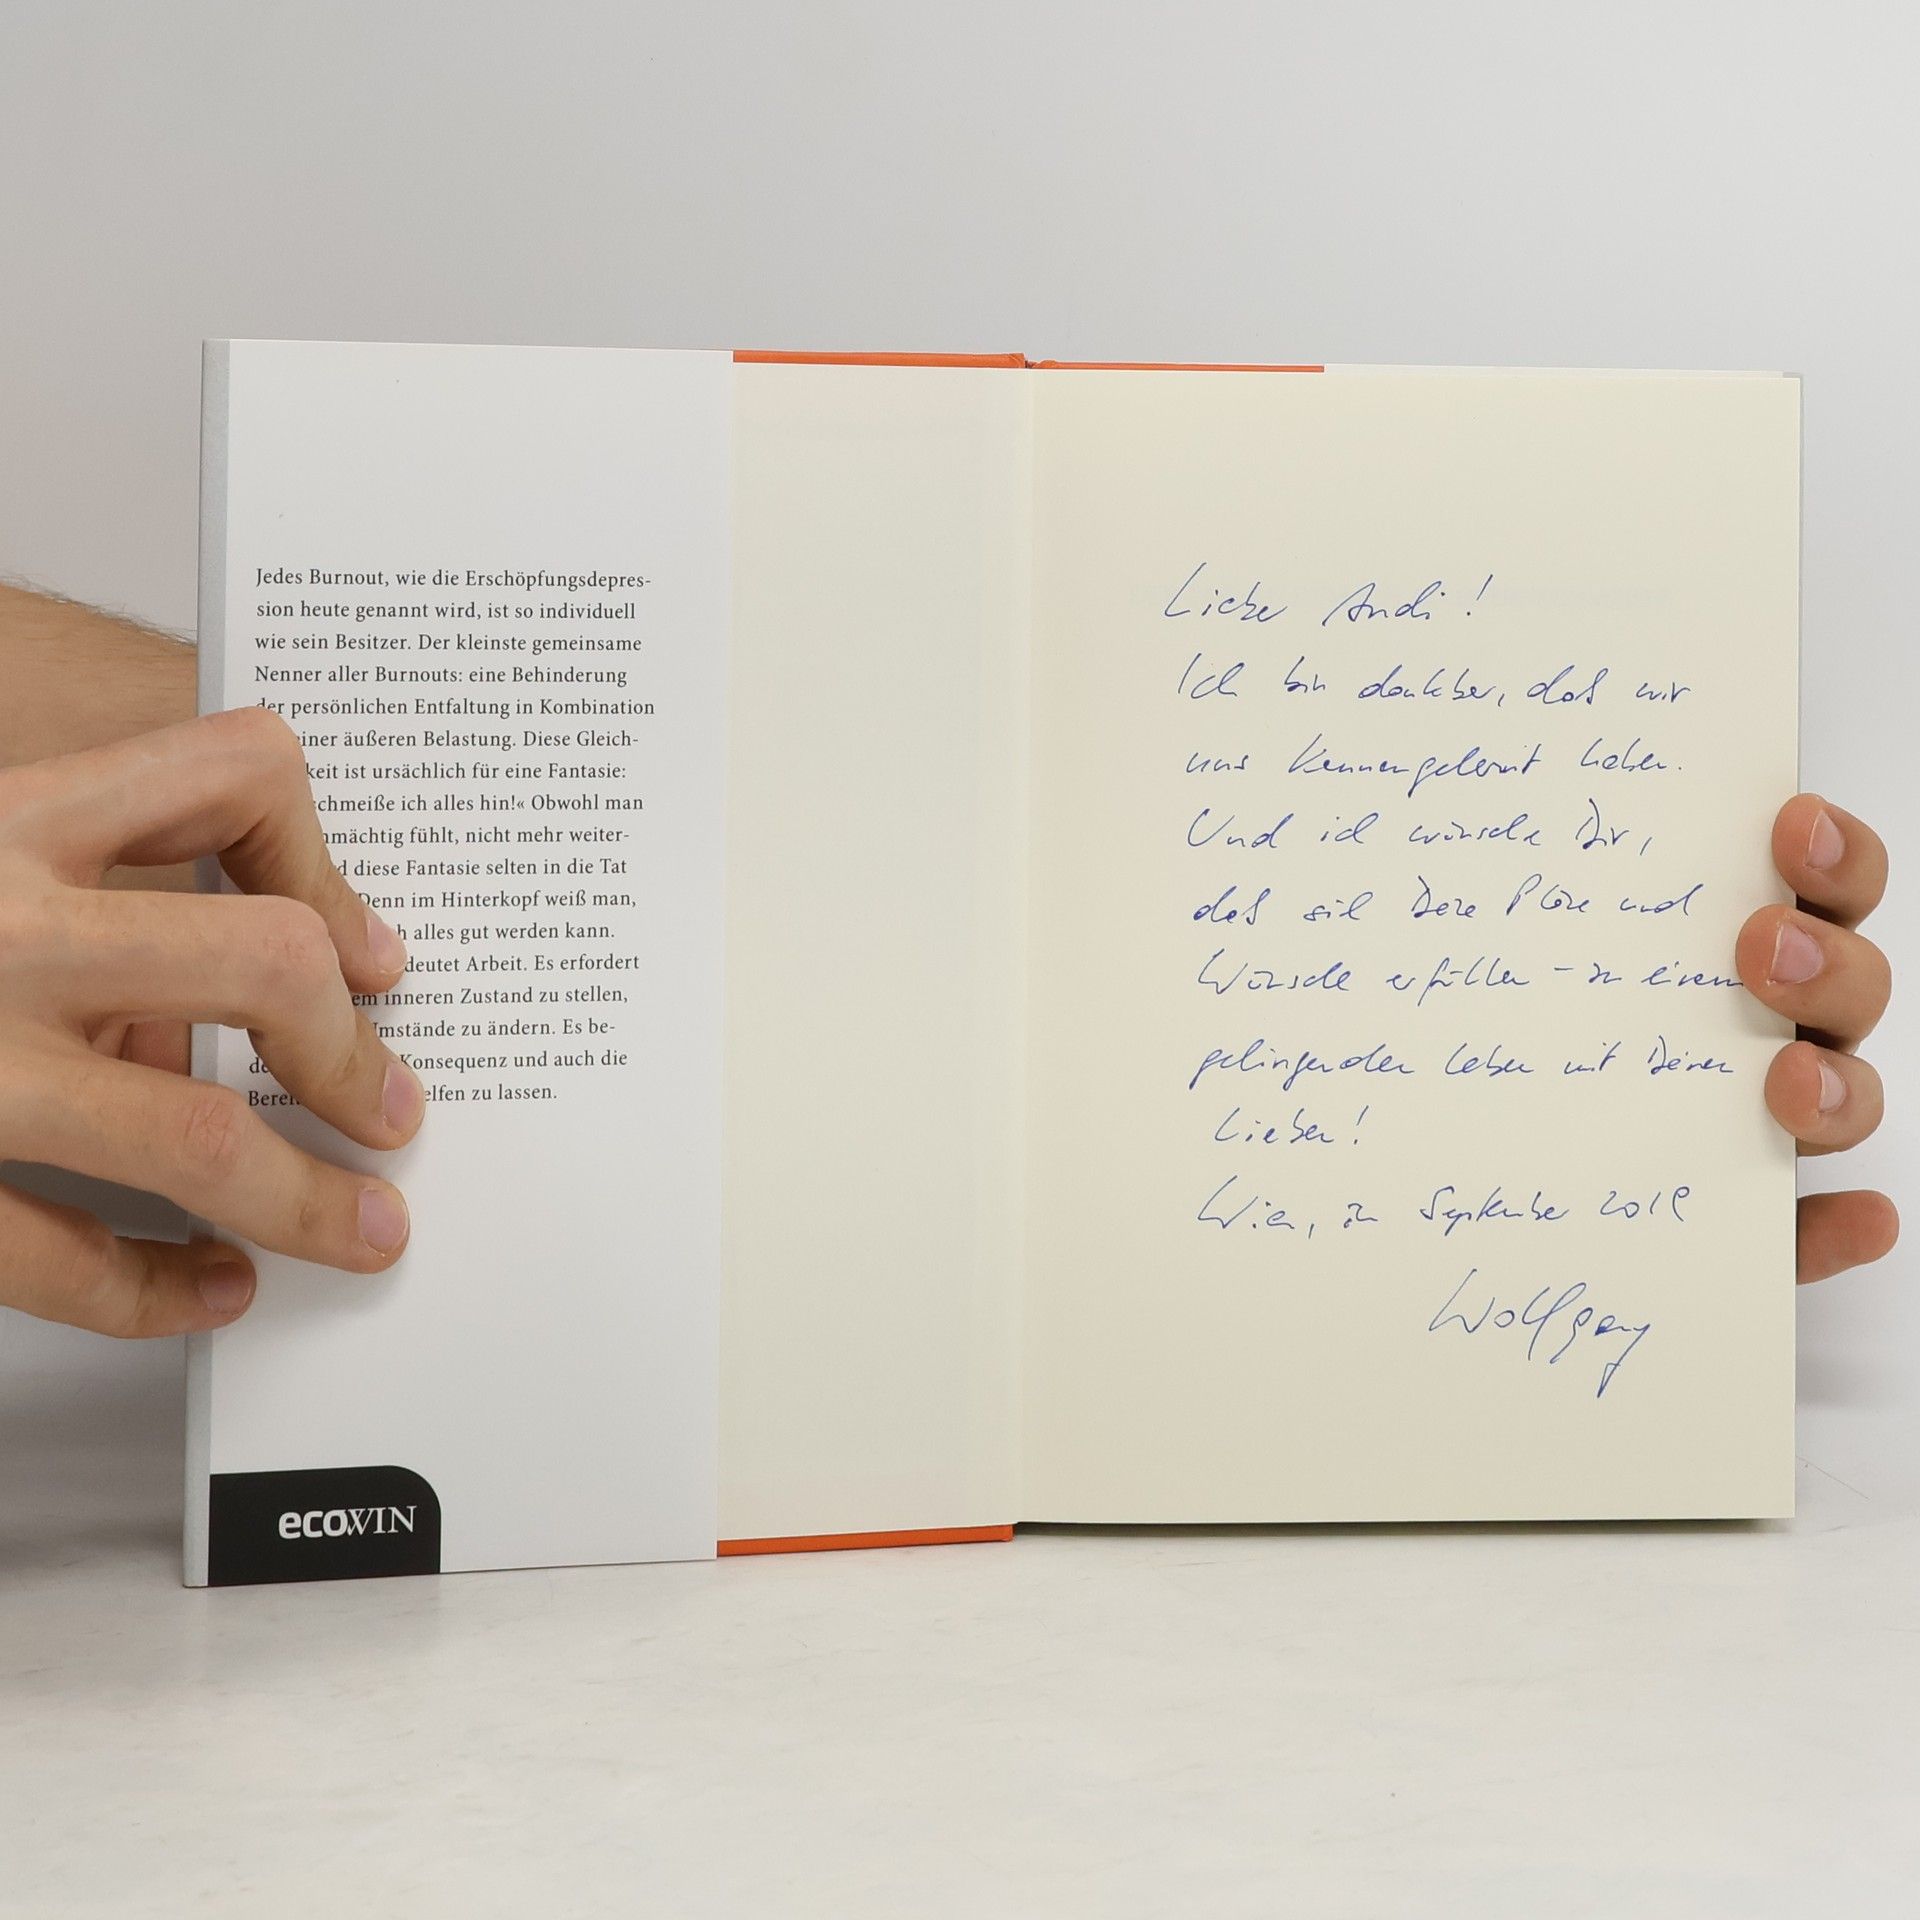 Jedes Burnout, wie die Erschöpfungsdepres-
sion heute genannt wird, ist so individuell
wie sein Besitzer. Der kleinste gemeinsame
Nenner aller Burnouts: eine Behinderung
der persönlichen Entfaltung in Kombination
einer äußeren Belastung. Diese Gleich-
keit ist ursächlich für eine Fantasie:
schmeiße ich alles hin!« Obwohl man
mächtig fühlt, nicht mehr weiter-
diese Fantasie selten in die Tat
Denn im Hinterkopf weiß man,
alles gut werden kann.
deutet Arbeit. Es erfordert
em inneren Zustand zu stellen,
Umstände zu ändern. Es be-
Konsequenz und auch die
elfen zu lassen.
ecoWIN
Liebe Andi!
Ich bin dankbar, daß wir
uns kennengelernt haben.
Und ich wünsche Dir,
daß sich Deine Pläne und
Wünsche erfüllen – in einem
gelingenden Leben mit Deinen
Lieben!
Wien, im September
Wolfgang